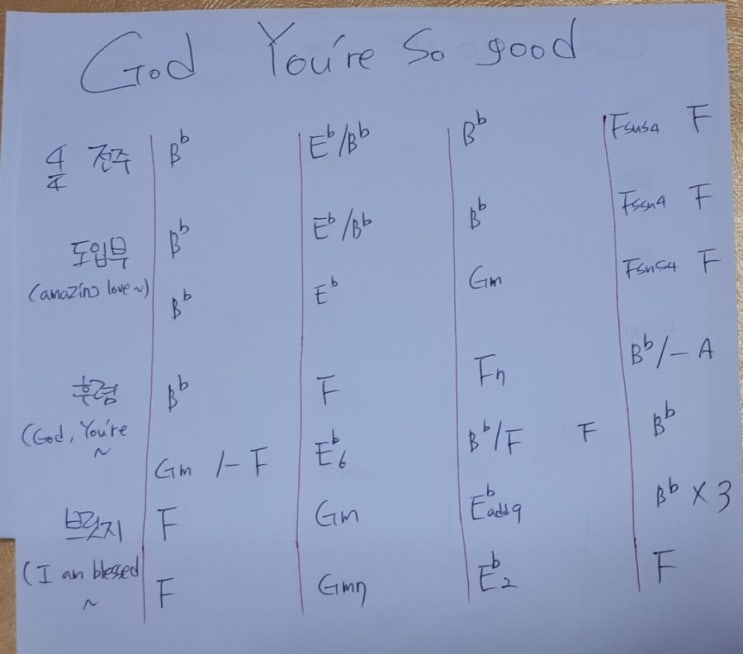 God You're So good
4/4 전주 B♭ E♭/B♭ B♭ Fsus4 F
도입부 B♭ E♭/B♭ B♭ Fssn4 F
(amazing love~) B♭ E♭ Gm Fsus4 F
후렴 B♭ F Fn B♭/-A
(God, You're ~ Gm /-F E♭6 B♭/F F B♭
브릿지 F Gm E♭add9 B♭ X 3
(I am blessed ~ F Gm7 E♭2 F